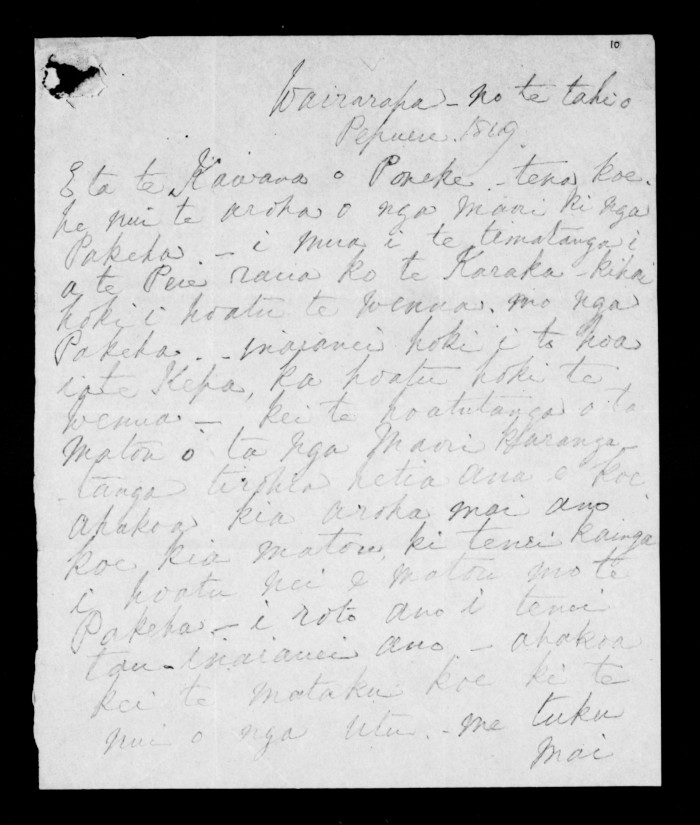 10
Wairarapa - no te tahi o
Pepuere. 1849.
E ta te Kawana o Poneke - tena koe.
he nui te aroha o nga Maori ki nga
Pakeha. - i mua i te timatanga i
a te Pere raua ko te Karaka - kihai
hoki i hoatu te wenua. mo nga
Pakeha. - inaianei hoki i to hoa
i a te Kepa, ka hoatu hoki te
wenua - kei te hoatutanga o ta
matou o ta nga Maori Karanga
tanga tirohia netia ana e koe
ahakoa kia aroha mai ano
koe kia matou, ki tenei kainga
i hoatu nei e matou mo te
Pakeha - i roto ano i tenei
tau - inaianei ano - ahakoa
kei te mataku koe ki te
nui o nga utu. - me tuku
mai